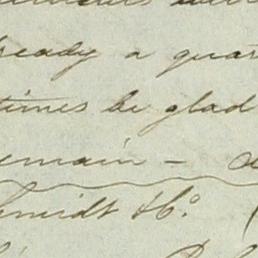 ready a quar
times be glad
emain —
hmidt & Co.